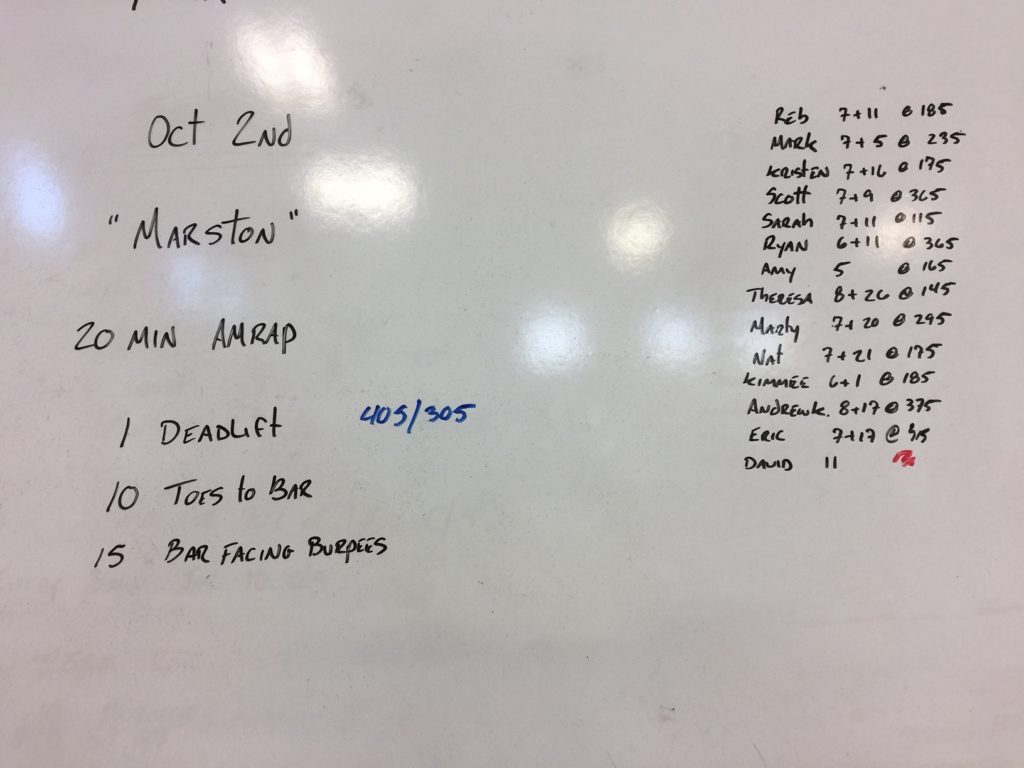 Oct 2nd
"MARSTON"
20 MIN AMRAP
1 DEADLIFT 405/305
10 TOES to BAR
15 BAR FACING BURPEES
REB 7+11 @ 185
MARK 7+5 @ 235
KRISTEN 7+16 @ 175
SCOTT 7+9 @ 365
SARAH 7+11 @ 115
RYAN 6+11 @ 365
AMY 5 @ 165
THERESA 8+26 @ 145
MARTY 7+20 @ 295
NAT 7+21 @ 175
KIMMEE 6+1 @ 185
ANDREW K. 8+17 @ 375
ERIC 7+17 @ 415
DAVID 11